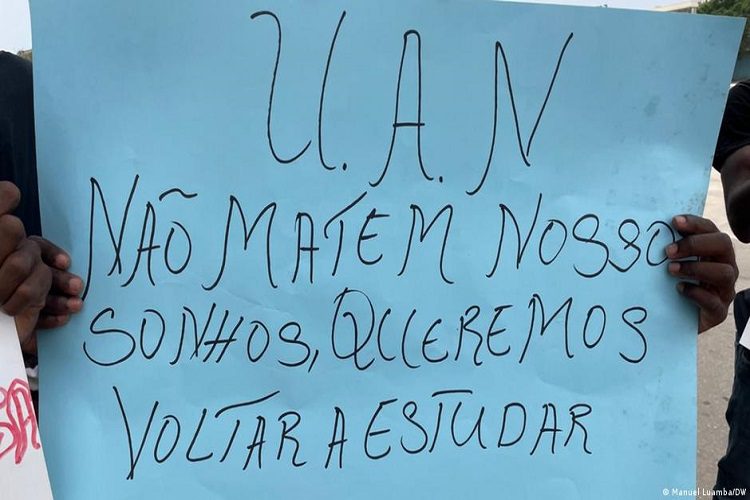 U.A.N
NÃO MATEM NOSSO
SONHOS, QUEREMOS
VOLTAR A ESTUDAR
© Manuel Luamba/DW